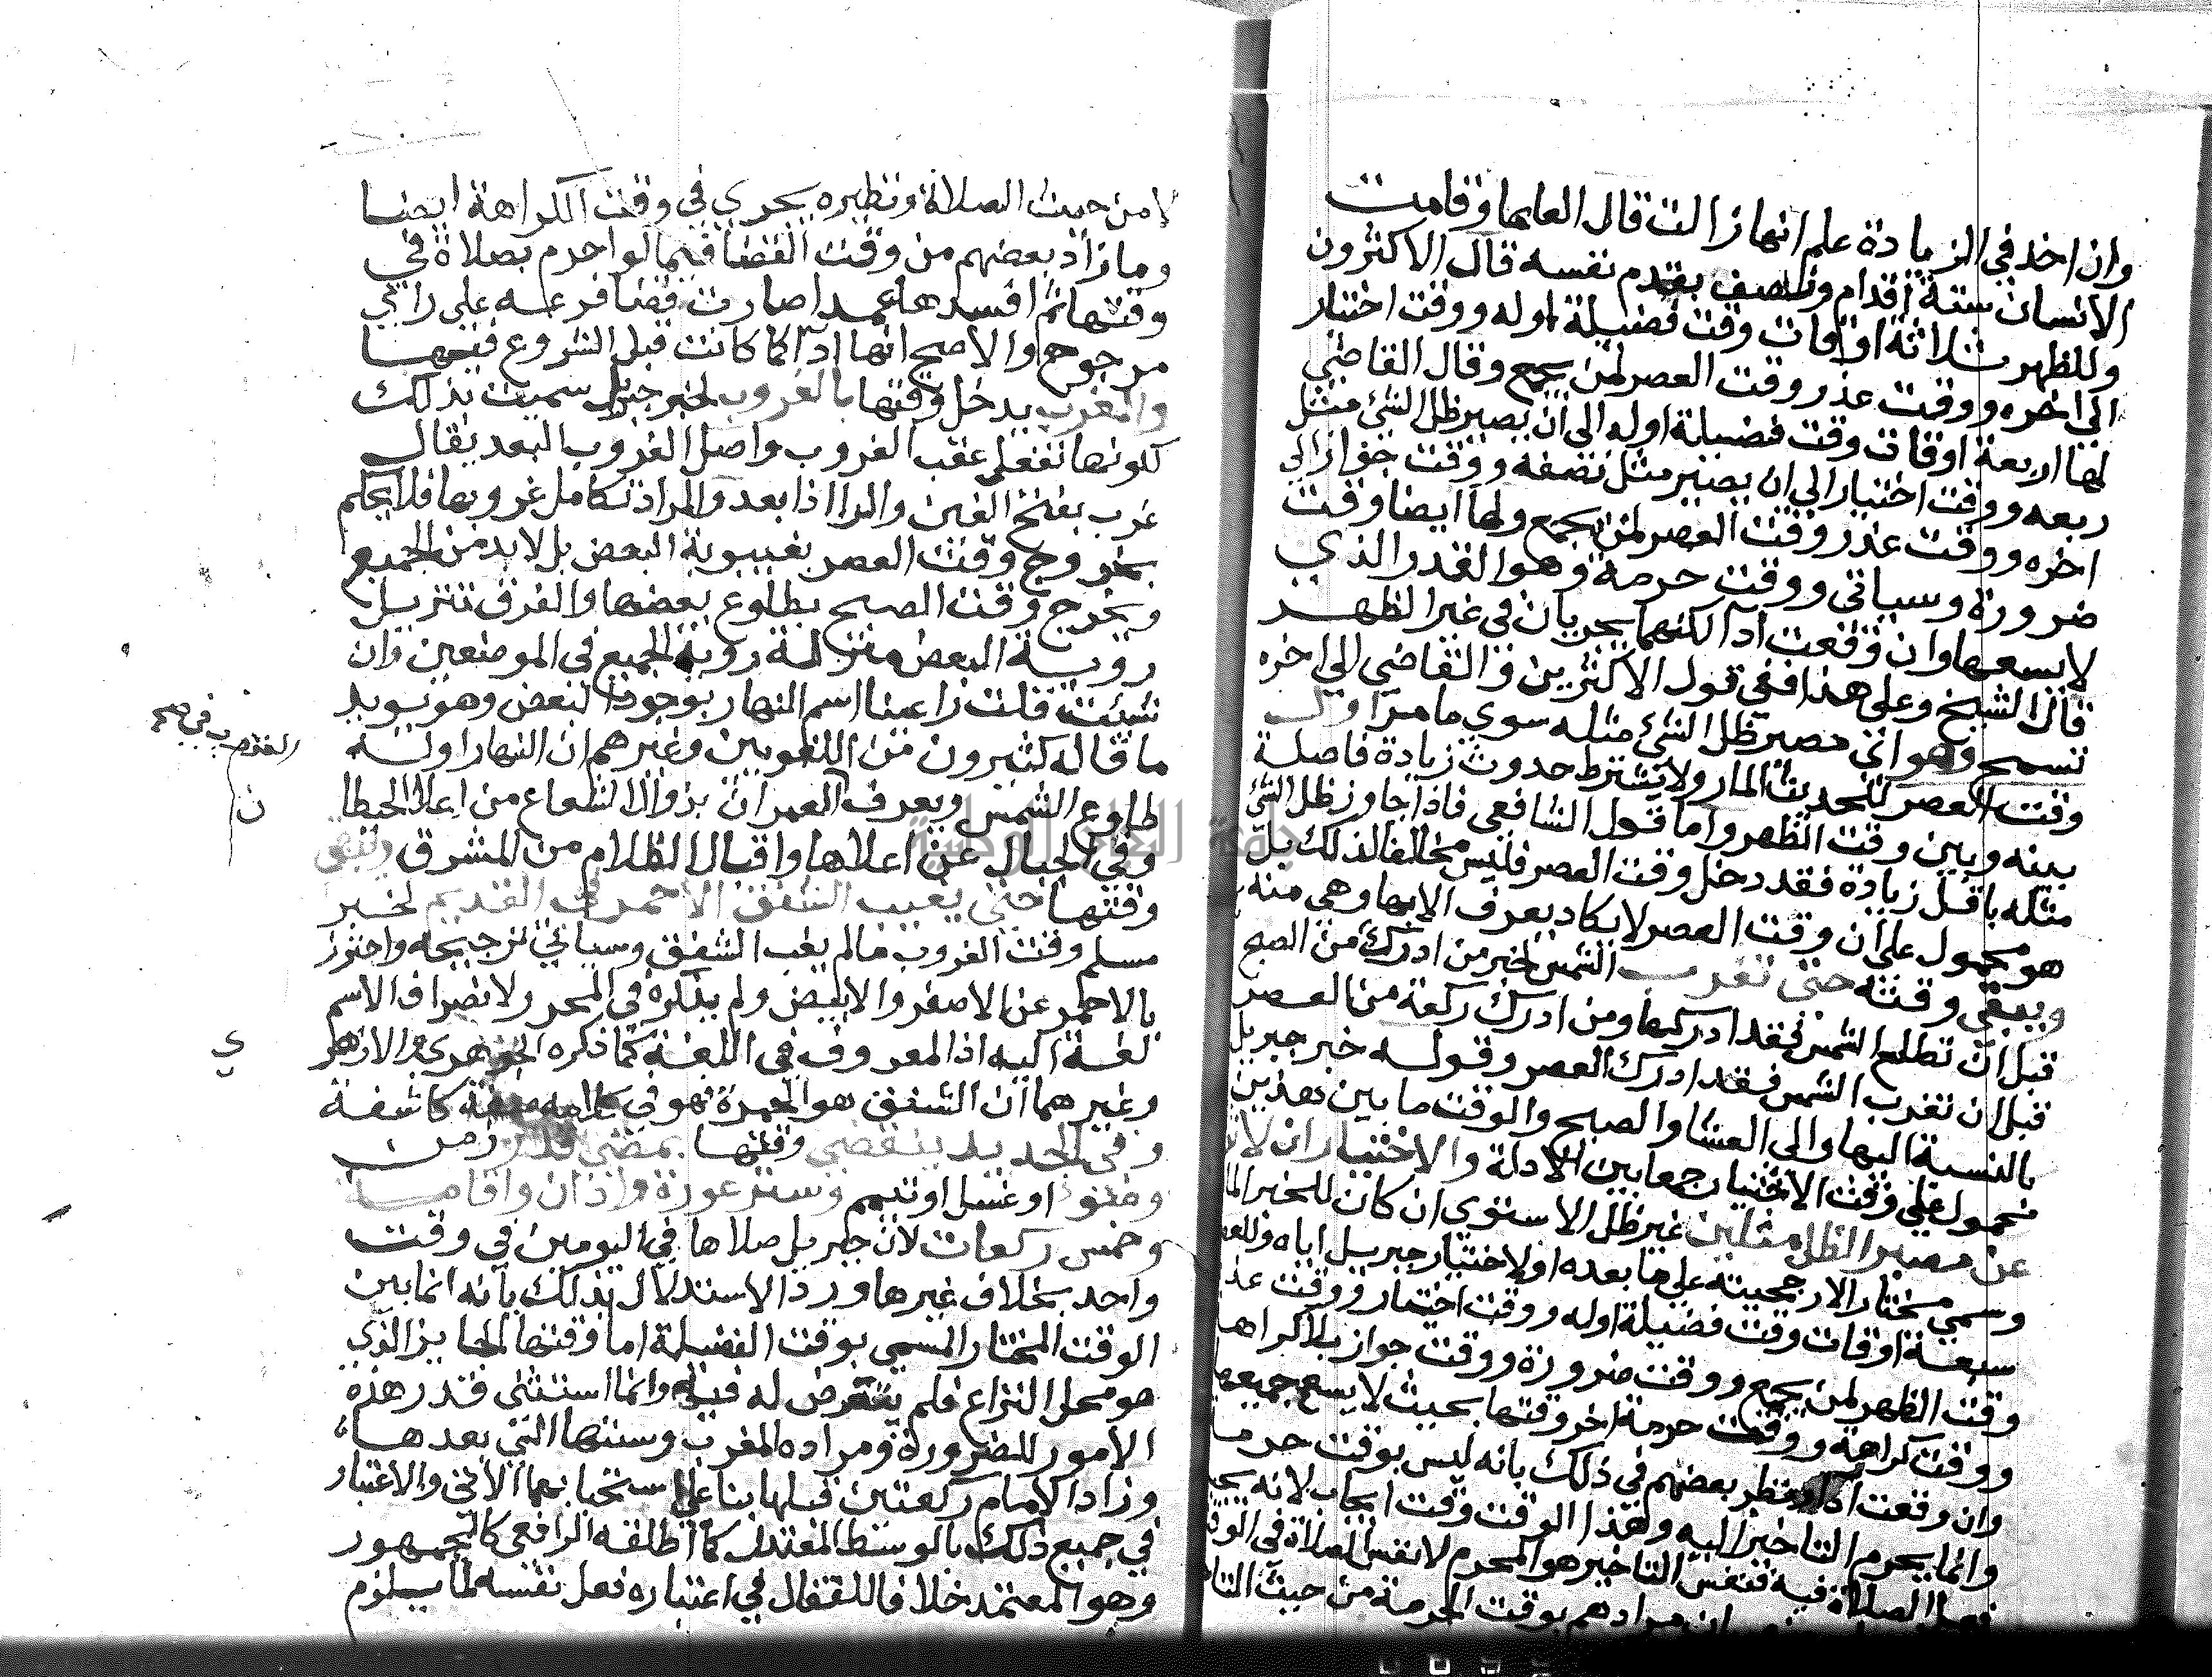 وان اخذ في الزيادة علم انها زالت قال العلما وقامت
الانسان ستة اقدام ونصف بقدم نفسه قال الاكثرون
وللظهر ثلاثة اوقات وقت فضيلة اوله ووقت اختيار
الي اخره ووقت عذر وقت العصر لمن يجمع وقال القاضي
لها اربعة اوقات وقت فضيلة اوله الي ان يصير ظل الشئ مثل
ربعه ووقت اختيار الي ان يصير مثل نصفه ووقت جواز الي
اخره ووقت عذر وقت العصر لمن يجمع ولها ايضا وقت
ضرورة وسياتي ووقت حرمة وهو القدر الذي
لا يسعها وان وقعت ادا لكنهما يجريان في غير الظهر
قال الشيخ وعلي هذا ففي قول الاكثرين والقاضي الي اخره
تسمح وهو اي مصير ظل الشئ مثله سوي ما مر اول
وقت العصر للحديث المار ولا يشترط حدوث زيادة فاصلة
بينه وبين وقت الظهر واما قول الشافعي فاذا جاوز ظل الشئ
مثله باقل زيادة فقد دخل وقت العصر فليس مخالفا لذلك بل
هو محمول علي ان وقت العصر لا يكاد يعرف الا بها وهي منه
ويبقي وقته حتي تغرب الشمس لخبر من ادرك من الصبح
قبل ان تطلع الشمس فقد ادركها ومن ادرك ركعة من العصر
قبل ان تغرب الشمس فقد ادرك العصر وقوله خبر جبريل
بالنسبة اليها والي العشا والصبح والوقت ما بين هذين
محمول علي وقت الاختيار جمعا بين الادلة والاختيار ان لا
عن مصير الظل مثلين غير ظل الاستوي ان كان للخبر
وسمي مختار الارجحيته علي ما بعده او لاختيار جبريل اياه
سبعة اوقات وقت فضيلة اوله ووقت اختيار ووقت عذ
وقت الظهر لمن يجمع ووقت ضرورة ووقت جواز بلا كراهة
ووقت كراهة ووقت حرمة اخر وقتها بحيث لا يسع جميعها
وان وقعت ادا ونظر بعضهم في ذلك بانه ليس بوقت حرمة
وانما يحرم التاخير اليه وهذا الوقت وقت ايجاب لانه
فعل الصلاة فيه فنفس التاخير هو المحرم لا نفس الصلاة في الوقت
ان مرادهم بوقت الحرمة من حيث
لا من حيث الصلاة ونظيره يجري في وقت الكراهة ايضا
وما زاد بعضهم من وقت القضا فيما لو احرم بصلاة في
وقتها ثم افسدها عمدا صارت قضا فرعه علي راي
مرجوح والاصح انها ادا كما كانت قبل الشروع فيها
والمغرب يدخل وقتها بالغروب لخبر جبريل سميت بذلك
لكونها تفعل عقب الغروب واصل الغروب البعد يقال
غرب بفتح الغين والرا اذا بعد والمراد تكامل غروبها فلا يحكم
بخروج وقت العصر بغيبوبة البعض بل لا بد من الجميع
ويخرج وقت الصبح بطلوع بعضها والفرق تنزيل
روية البعض منزلة روية الجميع في الموضعين وان
شئت قلت راعينا اسم النهار بوجود البعض وهو يويد
ما قاله كثيرون من اللغويين وغيرهم ان النهار اوله
طلوع الشمس ويعرف العمران بزوال الشعاع من اعلا الحيطا
ن
وفي الجبال عن اعلاها واقبال الظلام من المشرق ويبقي
وقتها حتي يغيب الشفق الاحمر في القديم لخبر
مسلم وقت الغروب ما لم يغب الشفق وسياتي ترجيحه واحترز
بالاحمر عن الاصفر والابيض ولم يذكره في المحرر لانصراف الاسم
لغة اليه اذ المعروف في اللغة كما ذكره الجوهري والازهر
ي
وغيرهما ان الشفق هو الحمرة فهو في كلامه صفة كاشفة
وفي الجديد ينقضي وقتها بمضي قدر زمن
وضوء او غسل او تيمم وستر عورة واذان واقامة
وخمس ركعات لان جبريل صلاها في اليومين في وقت
واحد بخلاف غيرها ورد الاستدلال بذلك بانه انما بين
الوقت المختار المسمي بوقت الفضيلة اما وقتها الجايز الذي
هو محل النزاع فلم يتعرض له فيه وانما استثني قدر هذه
الامور للضرورة ومراده المغرب وسنتها التي بعدها
وزاد الامام ركعتين قبلها بنا علي استحبابهما الاتي والاعتبار
في جميع ذلك بالوسط المعتدل كما اطلقه الرافعي كالجمهور
وهو المعتمد خلافا للقفال في اعتباره فعل نفسه لما يلزم